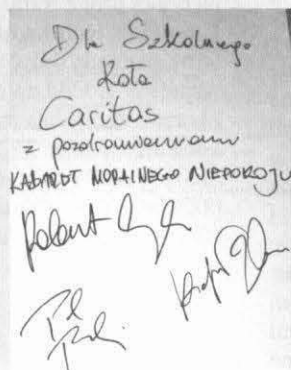 Dla Szkolnego
Koła
Caritas
z pozdrowieniami
KABARET MORALNEGO NIEPOKOJU
Robert